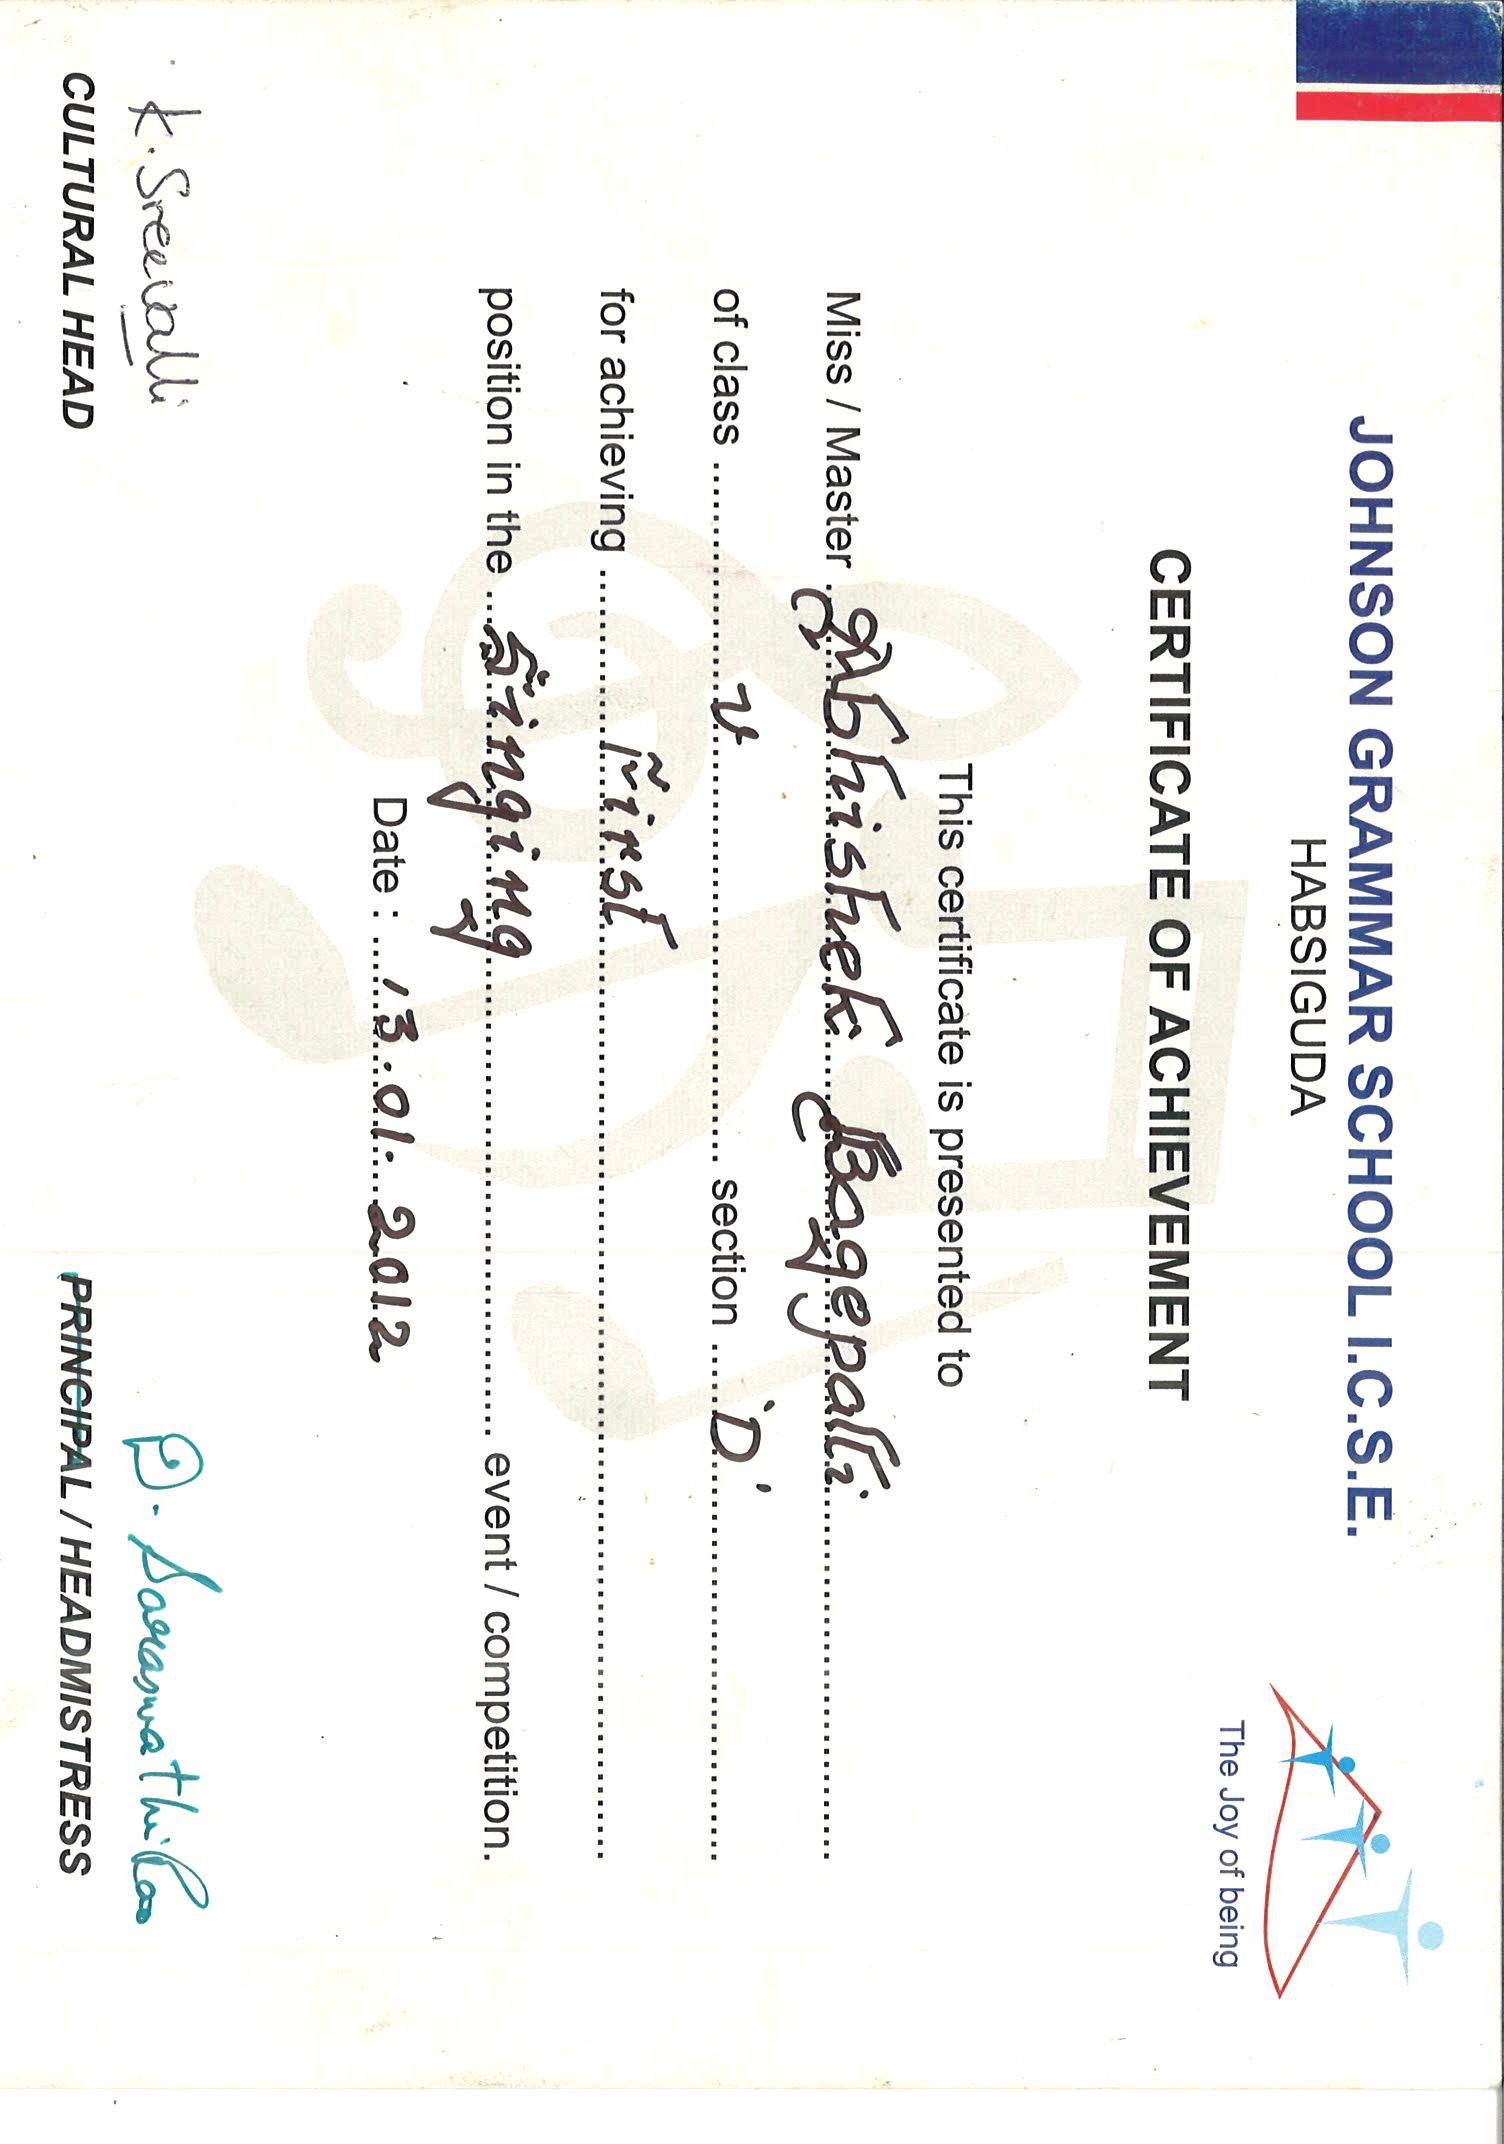 JOHNSON GRAMMAR SCHOOL I.C.S.E.
HABSIGUDA
The Joy of being
CERTIFICATE OF ACHIEVEMENT
This certificate is presented to
Miss / Master Abhishek Bagepalli
of class V section 'D'
for achieving First
position in the Singing event / competition.
Date : 13.01.2012
K. Sreevalli
D. Saraswathi Rao
CULTURAL HEAD
PRINCIPAL / HEADMISTRESS